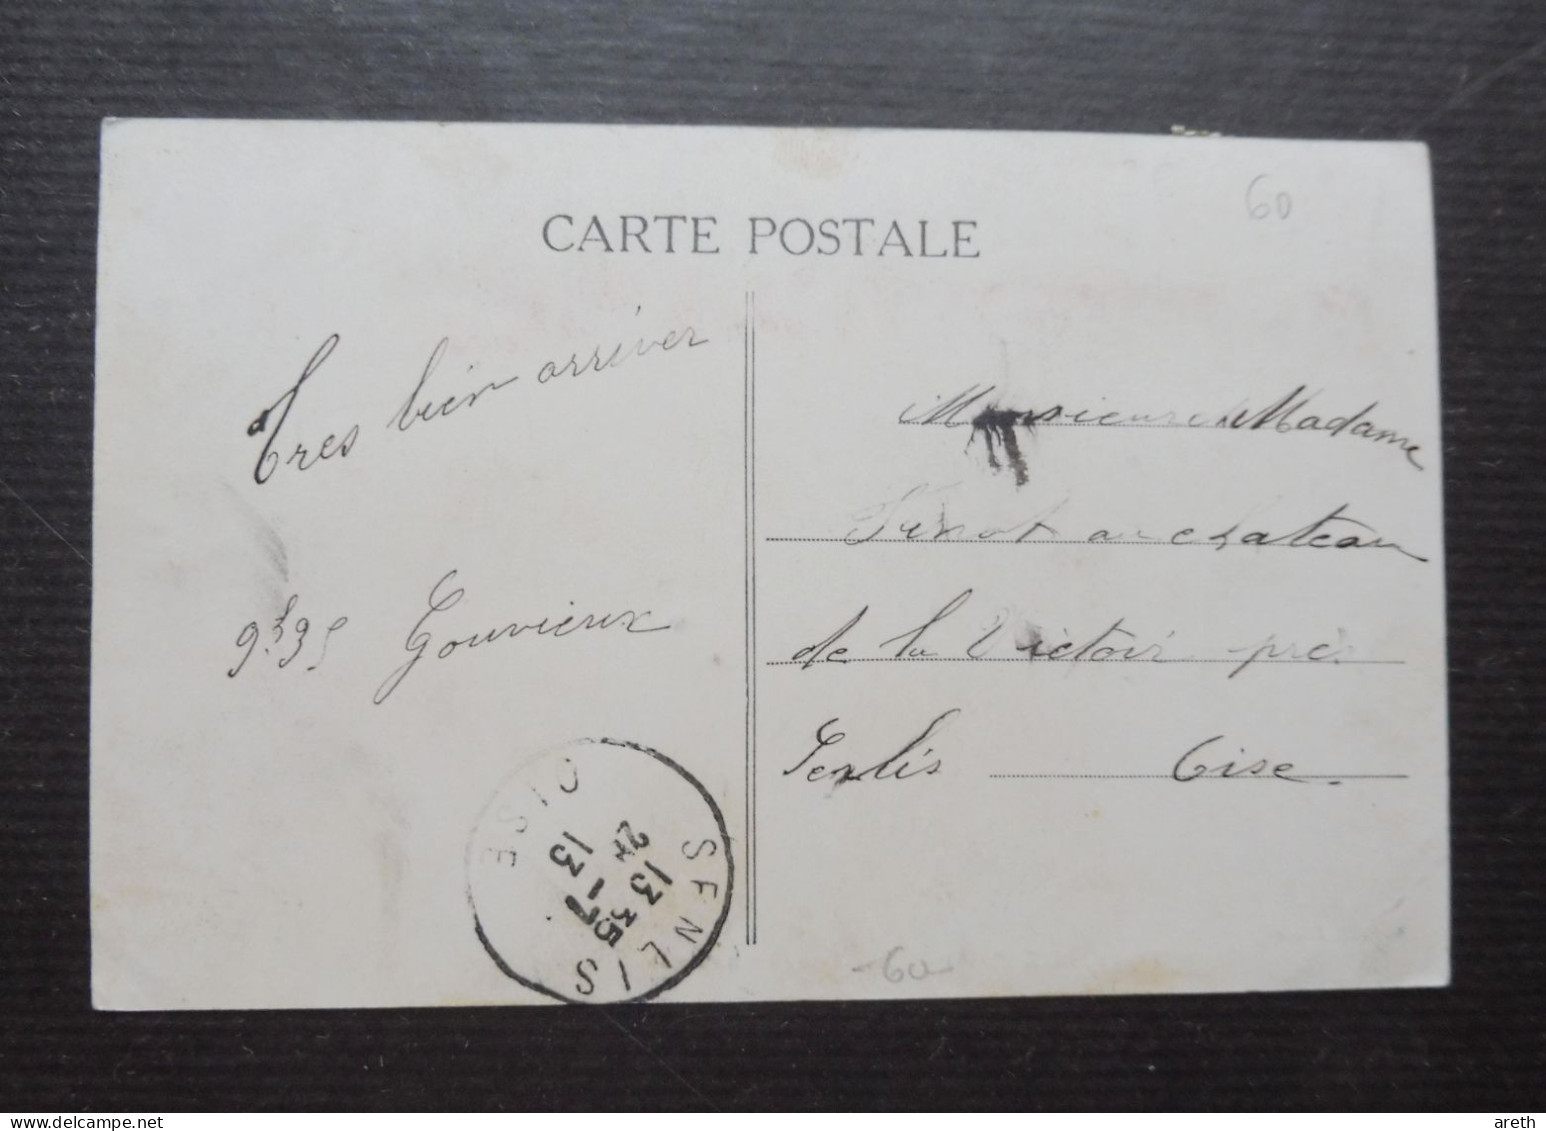 60
CARTE POSTALE
Tres bien arriver
9h35 Gouvieux
Monsieur et Madame
au chateau
de la Victoire près
Senlis Oise.
SENLIS
OISE
13 35
13 - 7
- 60
areth